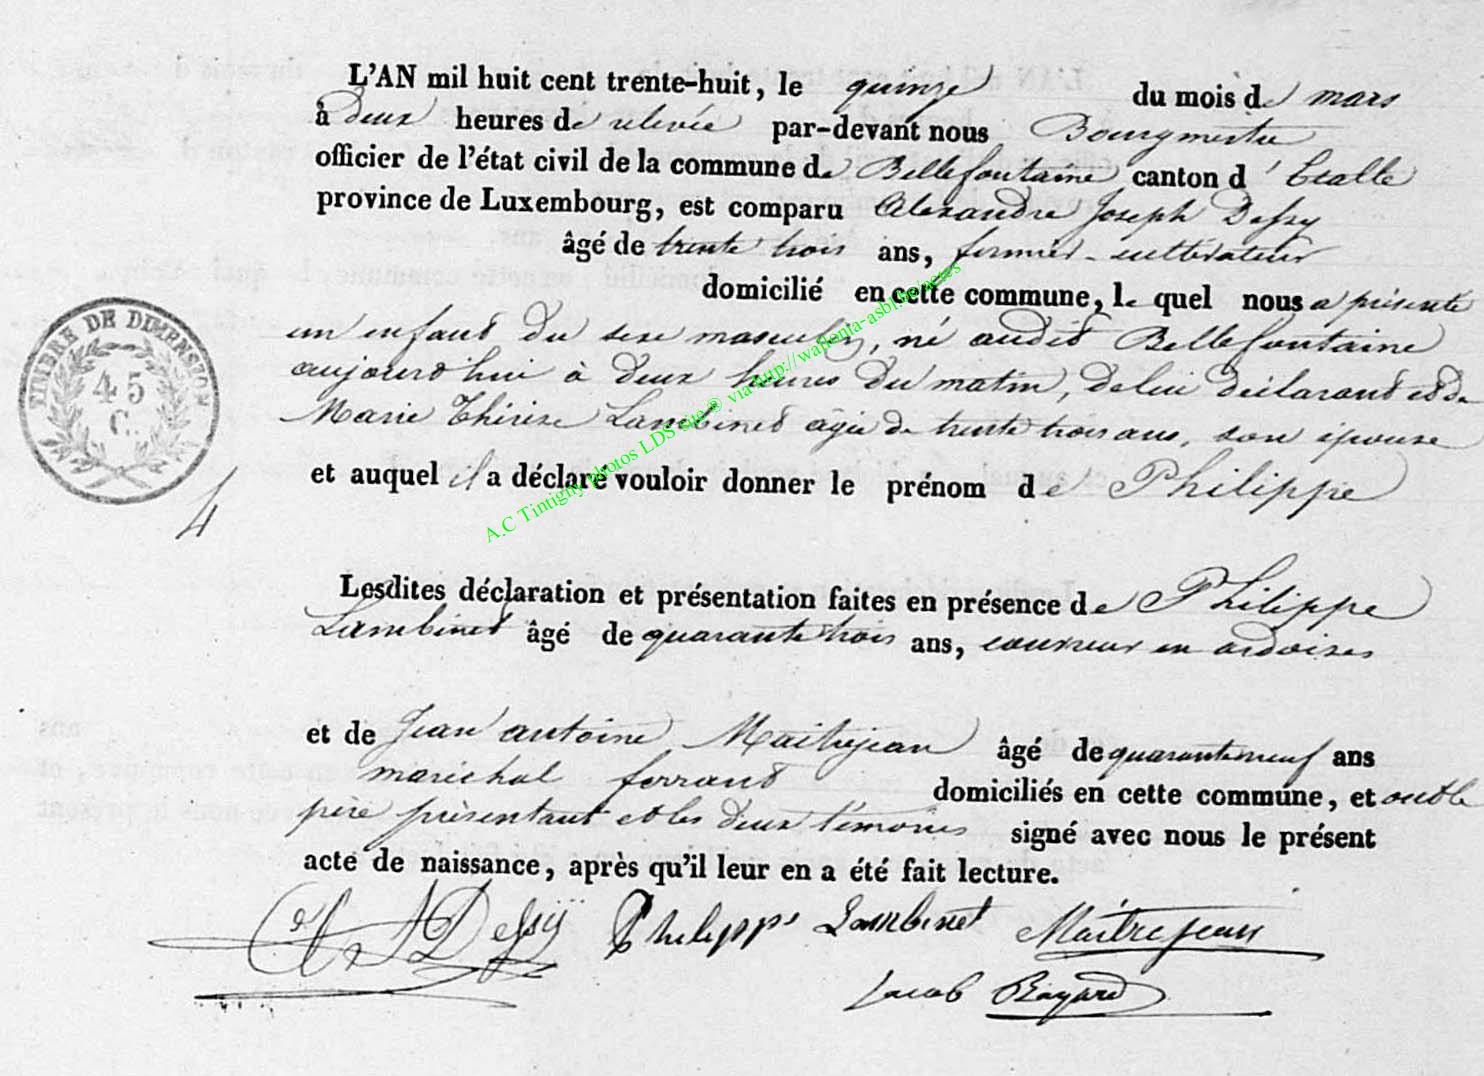 L'AN mil huit cent trente-huit, le quinze du mois de mars
à deux heures de relevée par-devant nous Bourgmestre
officier de l'état civil de la commune de Bellefontaine canton d'Etalle
province de Luxembourg, est comparu Alexandre Joseph Dessy
âgé de trente trois ans, fermier-cultivateur
domicilié en cette commune, le quel nous a présenté
un enfant du sexe masculin, né audit Bellefontaine
aujourd'hui à deux heures du matin, de lui déclarant et de
Marie Thérèse Lambinet agée de trente trois ans, son épouse
et auquel il a déclaré vouloir donner le prénom de Philippe
Lesdites déclaration et présentation faites en présence de Philippe
Lambinet âgé de quarante trois ans, couvreur en ardoises
et de Jean antoine Maitrejean âgé de quaranteneuf ans
maréchal ferrant domiciliés en cette commune, et ont le
père présentant et les deux témoins signé avec nous le présent
acte de naissance, après qu'il leur en a été fait lecture.
A J Dessÿ Philippe Lambinet Maitrejean
Jacob Bayard
TIMBRE DE DIMENSION
45
C.
4
A.C Tintigny photos LDS site ® via http://wallonia-asbl.be/actes